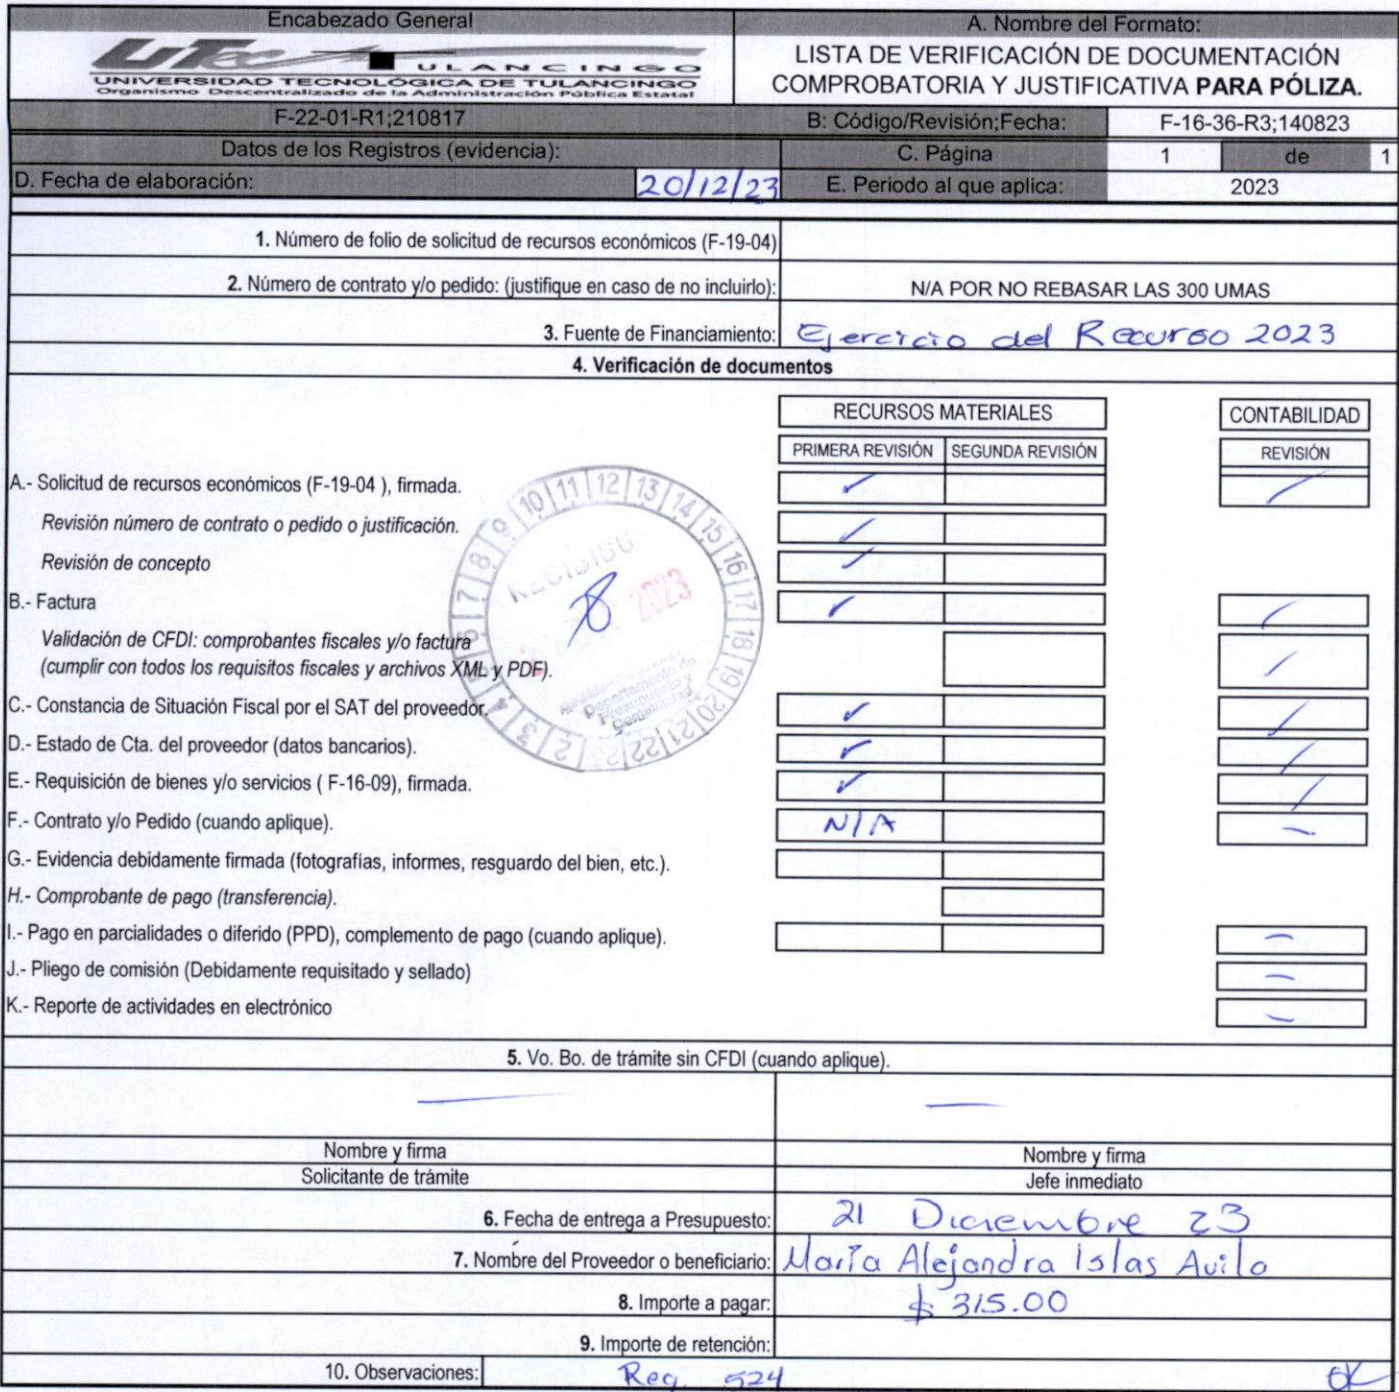 Encabezado General
A. Nombre del Formato:
UTec TULANCINGO
UNIVERSIDAD TECNOLÓGICA DE TULANCINGO
Organismo Descentralizado de la Administración Pública Estatal
LISTA DE VERIFICACIÓN DE DOCUMENTACIÓN
COMPROBATORIA Y JUSTIFICATIVA PARA PÓLIZA.
F-22-01-R1;210817
B: Código/Revisión;Fecha: F-16-36-R3;140823
Datos de los Registros (evidencia):
C. Página 1 de 1
D. Fecha de elaboración: 20/12/23
E. Periodo al que aplica: 2023
1. Número de folio de solicitud de recursos económicos (F-19-04)
2. Número de contrato y/o pedido: (justifique en caso de no incluirlo): N/A POR NO REBASAR LAS 300 UMAS
3. Fuente de Financiamiento: Ejercicio del Recurso 2023
4. Verificación de documentos
RECURSOS MATERIALES CONTABILIDAD
PRIMERA REVISIÓN SEGUNDA REVISIÓN REVISIÓN
A.- Solicitud de recursos económicos (F-19-04 ), firmada.
Revisión número de contrato o pedido o justificación.
Revisión de concepto
B.- Factura
Validación de CFDI: comprobantes fiscales y/o factura
(cumplir con todos los requisitos fiscales y archivos XML y PDF).
C.- Constancia de Situación Fiscal por el SAT del proveedor.
D.- Estado de Cta. del proveedor (datos bancarios).
E.- Requisición de bienes y/o servicios ( F-16-09), firmada.
F.- Contrato y/o Pedido (cuando aplique). N/A
G.- Evidencia debidamente firmada (fotografías, informes, resguardo del bien, etc.).
H.- Comprobante de pago (transferencia).
I.- Pago en parcialidades o diferido (PPD), complemento de pago (cuando aplique).
J.- Pliego de comisión (Debidamente requisitado y sellado)
K.- Reporte de actividades en electrónico
RECIBIDO
2023
Departamento de
Presupuesto y
Contabilidad
1 2 3 4 5 6 7 8 9 10 11 12 13 14 15 16 17 18 19 20 21 22 23
5. Vo. Bo. de trámite sin CFDI (cuando aplique).
Nombre y firma
Solicitante de trámite
Nombre y firma
Jefe inmediato
6. Fecha de entrega a Presupuesto: 21 Diciembre 23
7. Nombre del Proveedor o beneficiario: María Alejandra Islas Avila
8. Importe a pagar: $ 315.00
9. Importe de retención:
10. Observaciones: Req. 524 OK